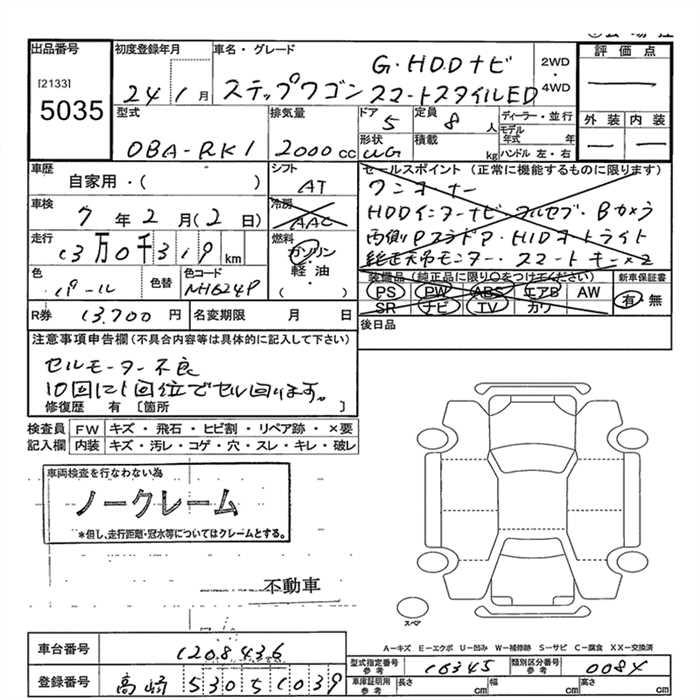 出品番号
[2133]
5035
初度登録年月
24年1月
車名・グレード
G・HDDナビ
ステップワゴン スマートスタイルED
2WD
・
4WD
評価点
外装 内装
型式
DBA-RK1
排気量
2000cc
ドア
5
形状
WG
定員
8人
積載
kg
ディーラー・並行
モデル年式 年
ハンドル 左・右
車歴
自家用・( )
シフト
AT
車検
7年2月(2日)
冷房
AAC
走行
13万0千319km
燃料
ガソリン
軽油
・( )
色
パール
色替
色コード
NH624P
R券
13,700円
名変期限 月 日
セールスポイント(正常に機能するものに限ります)
ワンオーナー
HDDインターナビ フルセグ・Bカメラ
両側Pスラドア・HIDヘットライト
純正天吊モニター・スマートキー×2
装備品(純正品に限り○をつけて下さい)
PS PW ABS エアB AW
SR ナビ TV カワ
新車保証書
有・無
後日品
注意事項申告欄(不具合内容等は具体的に記入して下さい)
セルモーター不良
10回に1回位でセル回ります。
修復歴 有 [箇所 ]
検査員 FW キズ・飛石・ヒビ割・リペア跡・×要
記入欄 内装 キズ・汚レ・コゲ・穴・スレ・キレ・破レ
車両検査を行なわない為
ノークレーム
*但し、走行距離・冠水等についてはクレームとする。
不動車
スペア
A—キズ E—エクボ U—凹み W—補修跡 S—サビ C—腐食 XX—交換済
車台番号
1208436
登録番号
高崎 530 さ 1039
型式指定番号
参考
16345
類別区分番号
参考
0084
車庫証明用
参考
長さ cm 幅 cm 高さ cm